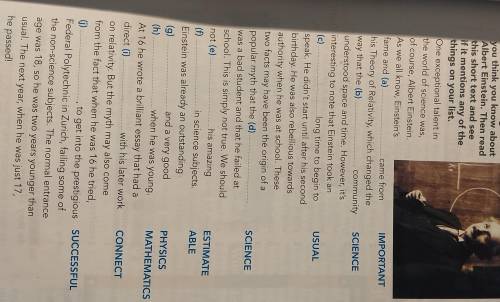 you think you know about
Albert Einstein. Then read
this short text and see
if it mentions any of the
things on your list.
One exceptional talent in
the world of science was,
of course, Albert Einstein.
As we all know, Einstein's
fame and (a) ........ came from IMPORTANT
his Theory of Relativity, which changed the
way that the (b) ........ community SCIENCE
understood space and time. However, it's
interesting to note that Einstein took an
(c) ........ long time to begin to USUAL
speak. He didn't start until after his second
birthday. He was also rebellious towards
authority when he was at school. These
two facts may have been the origin of a
popular myth that the (d) ........ SCIENCE
was a bad student and that he failed at
school. This is simply not true. We should
not (e) ........ his amazing ESTIMATE
(f) ........ in science subjects. ABLE
Einstein was already an outstanding
(g) ........ and a very good PHYSICS
(h) ........ when he was young. MATHEMATICS
At 16 he wrote a brilliant essay that had a
direct (i) ........ with his later work CONNECT
on relativity. But the myth may also come
from the fact that when he was 16 he tried,
(j) ........ to get into the prestigious SUCCESSFUL
Federal Polytechnic in Zurich, failing some of
the non-science subjects. The normal entrance
age was 18, so he was two years younger than
usual. The next year, when he was just 17,
he passed!